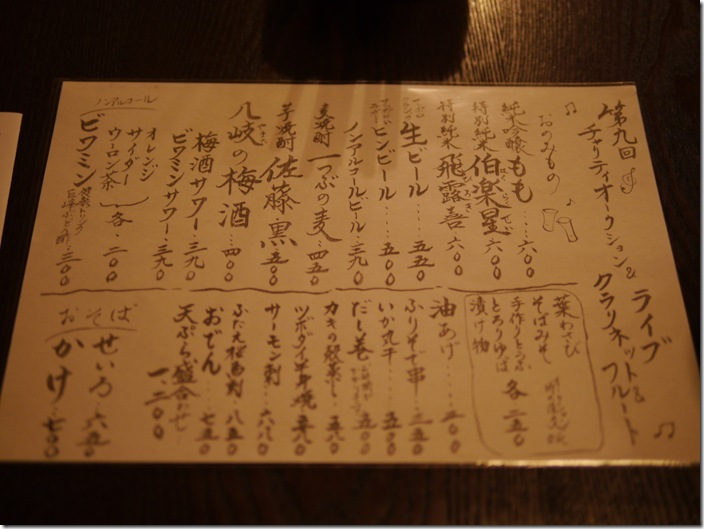 第九回
チャリティオークション&
ライブ
クラリネット&
フルート
おのみもの
純米吟醸 もも……六〇〇
特別純米 伯楽星 六〇〇
特別純米 飛露喜 六〇〇
生ビール……五五〇
ビンビール……五〇〇
ノンアルコールビール…三九〇
麦焼酎 一つぶの麦…四五〇
芋焼酎 佐藤黒 五〇〇
八岐の梅酒…四〇〇
梅酒サワー…三九〇
ビワミンサワー…三九〇
ノンアルコール
オレンジ
サイダー
ウーロン茶
各・二〇〇
ビワミン
三〇〇
葉わさび
そばみそ
手作りとうふ
とろりゆば
漬け物
各二五〇
油あげ
ふりそで串
いか丸干……五〇〇
だし巻
カキの
ツボダイ半身焼
サーモン刺……六八〇
おでん……七五〇
天ぷら盛合わせ…
一、二〇〇
おそば
せいろ…六五〇
かけ…七〇〇